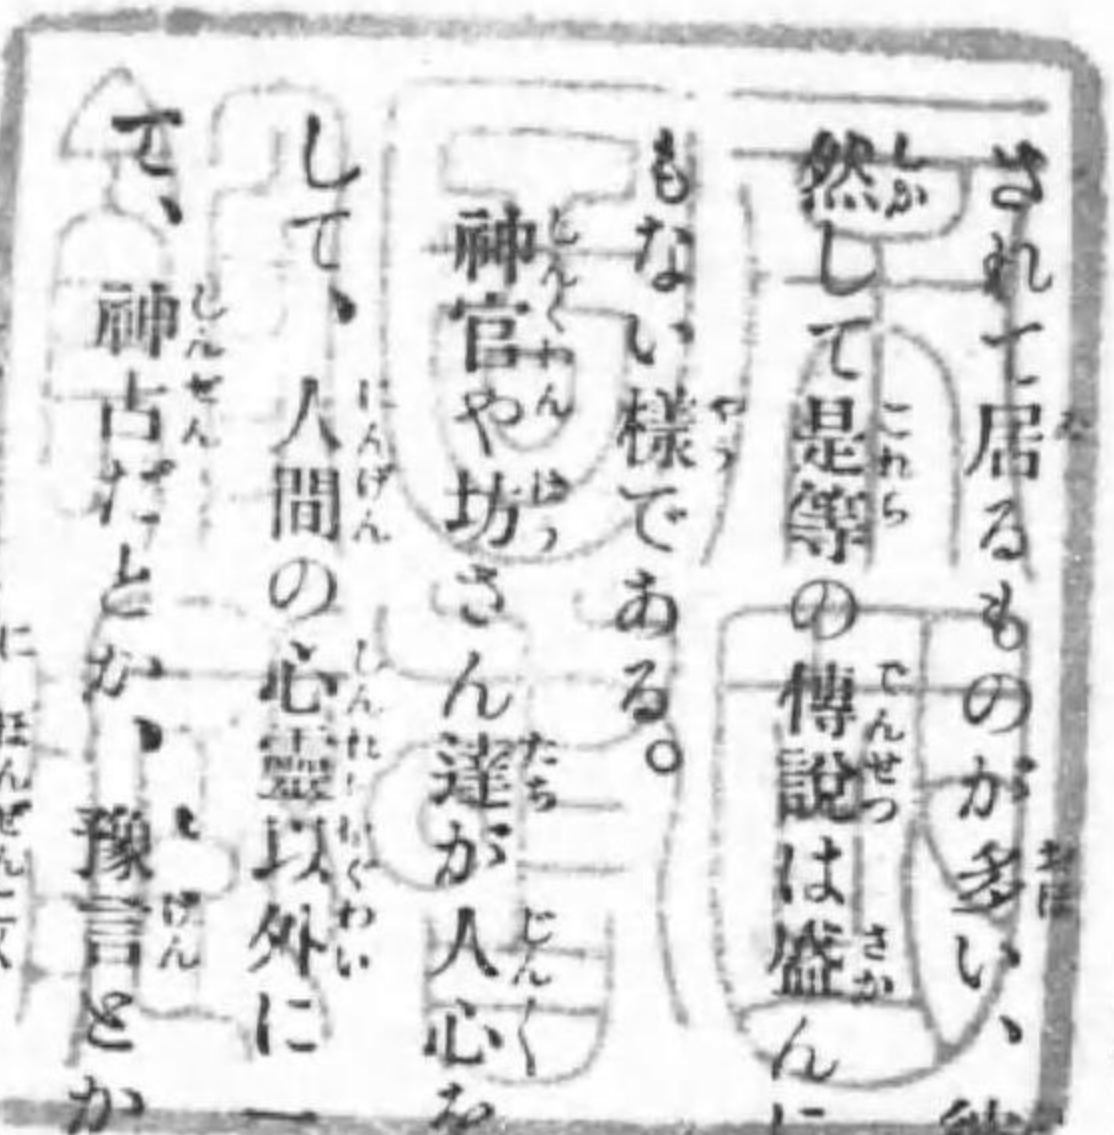 されて居るものが多い、
然して是等の傳說は盛んに
もない樣である。
神官や坊さん達が人心を
して、人間の心靈以外に一
て、神占だとか、豫言とか